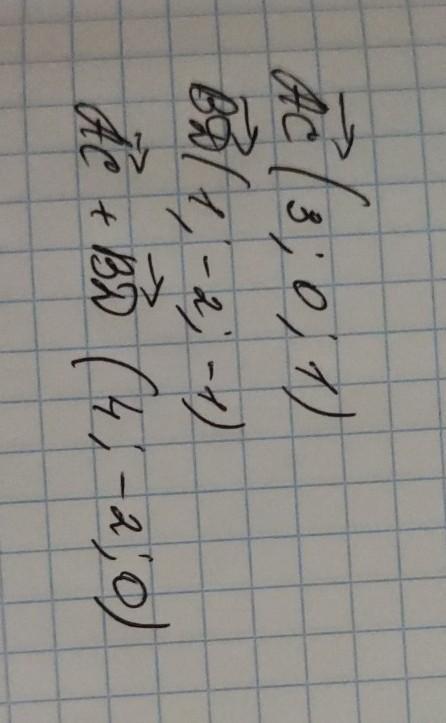 AC→ (3; 0; 1)
BD→ (1; -2; -1)
AC→ + BD→ (4; -2; 0)